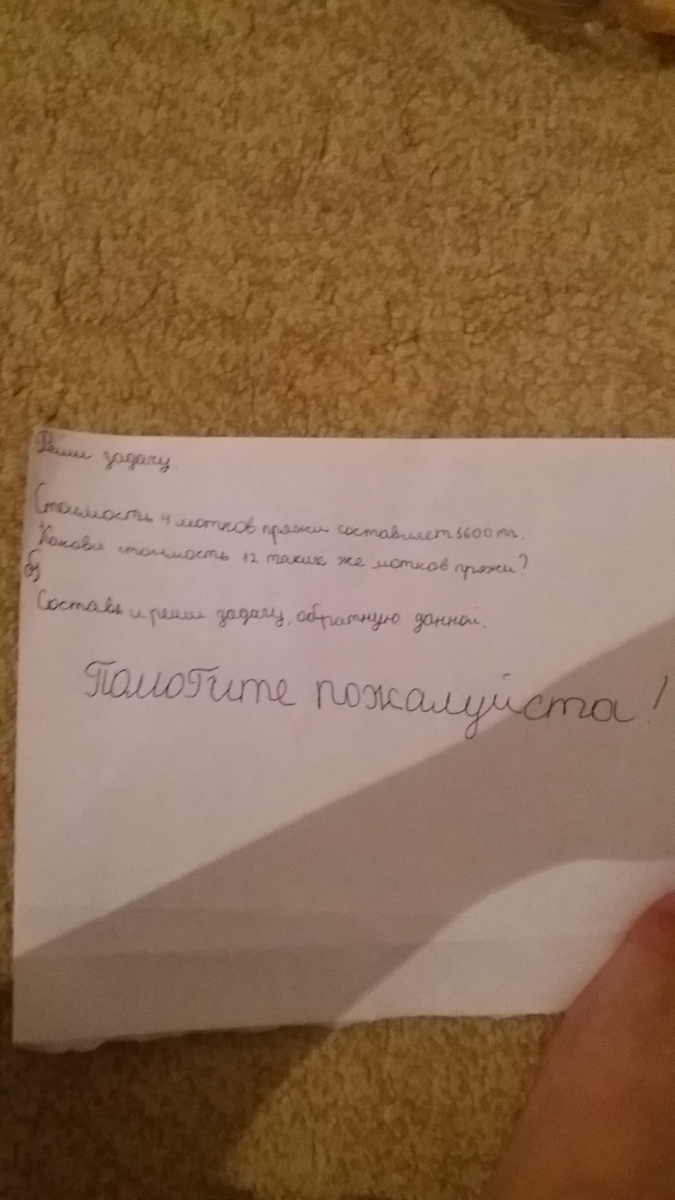 Реши задачу.
Стоимость 4 мотков пряжи составляет 5600 тг.
Какова стоимость 12 таких же мотков пряжи?
б)
Составь и реши задачу, обратную данной.
Помогите пожалуйста!